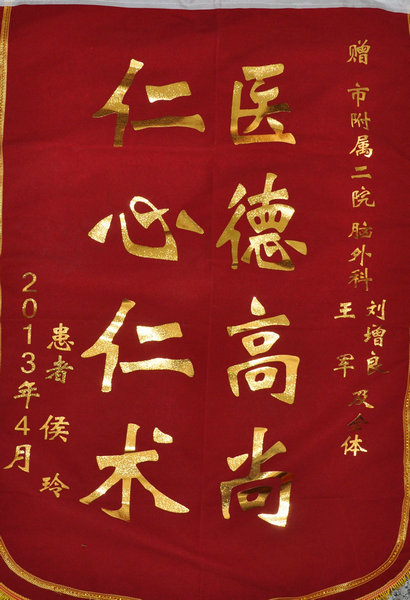 赠 市附属二院 脑外科 刘增良 王军 及全体
医德高尚
仁心仁术
患者 侯玲
2013年4月